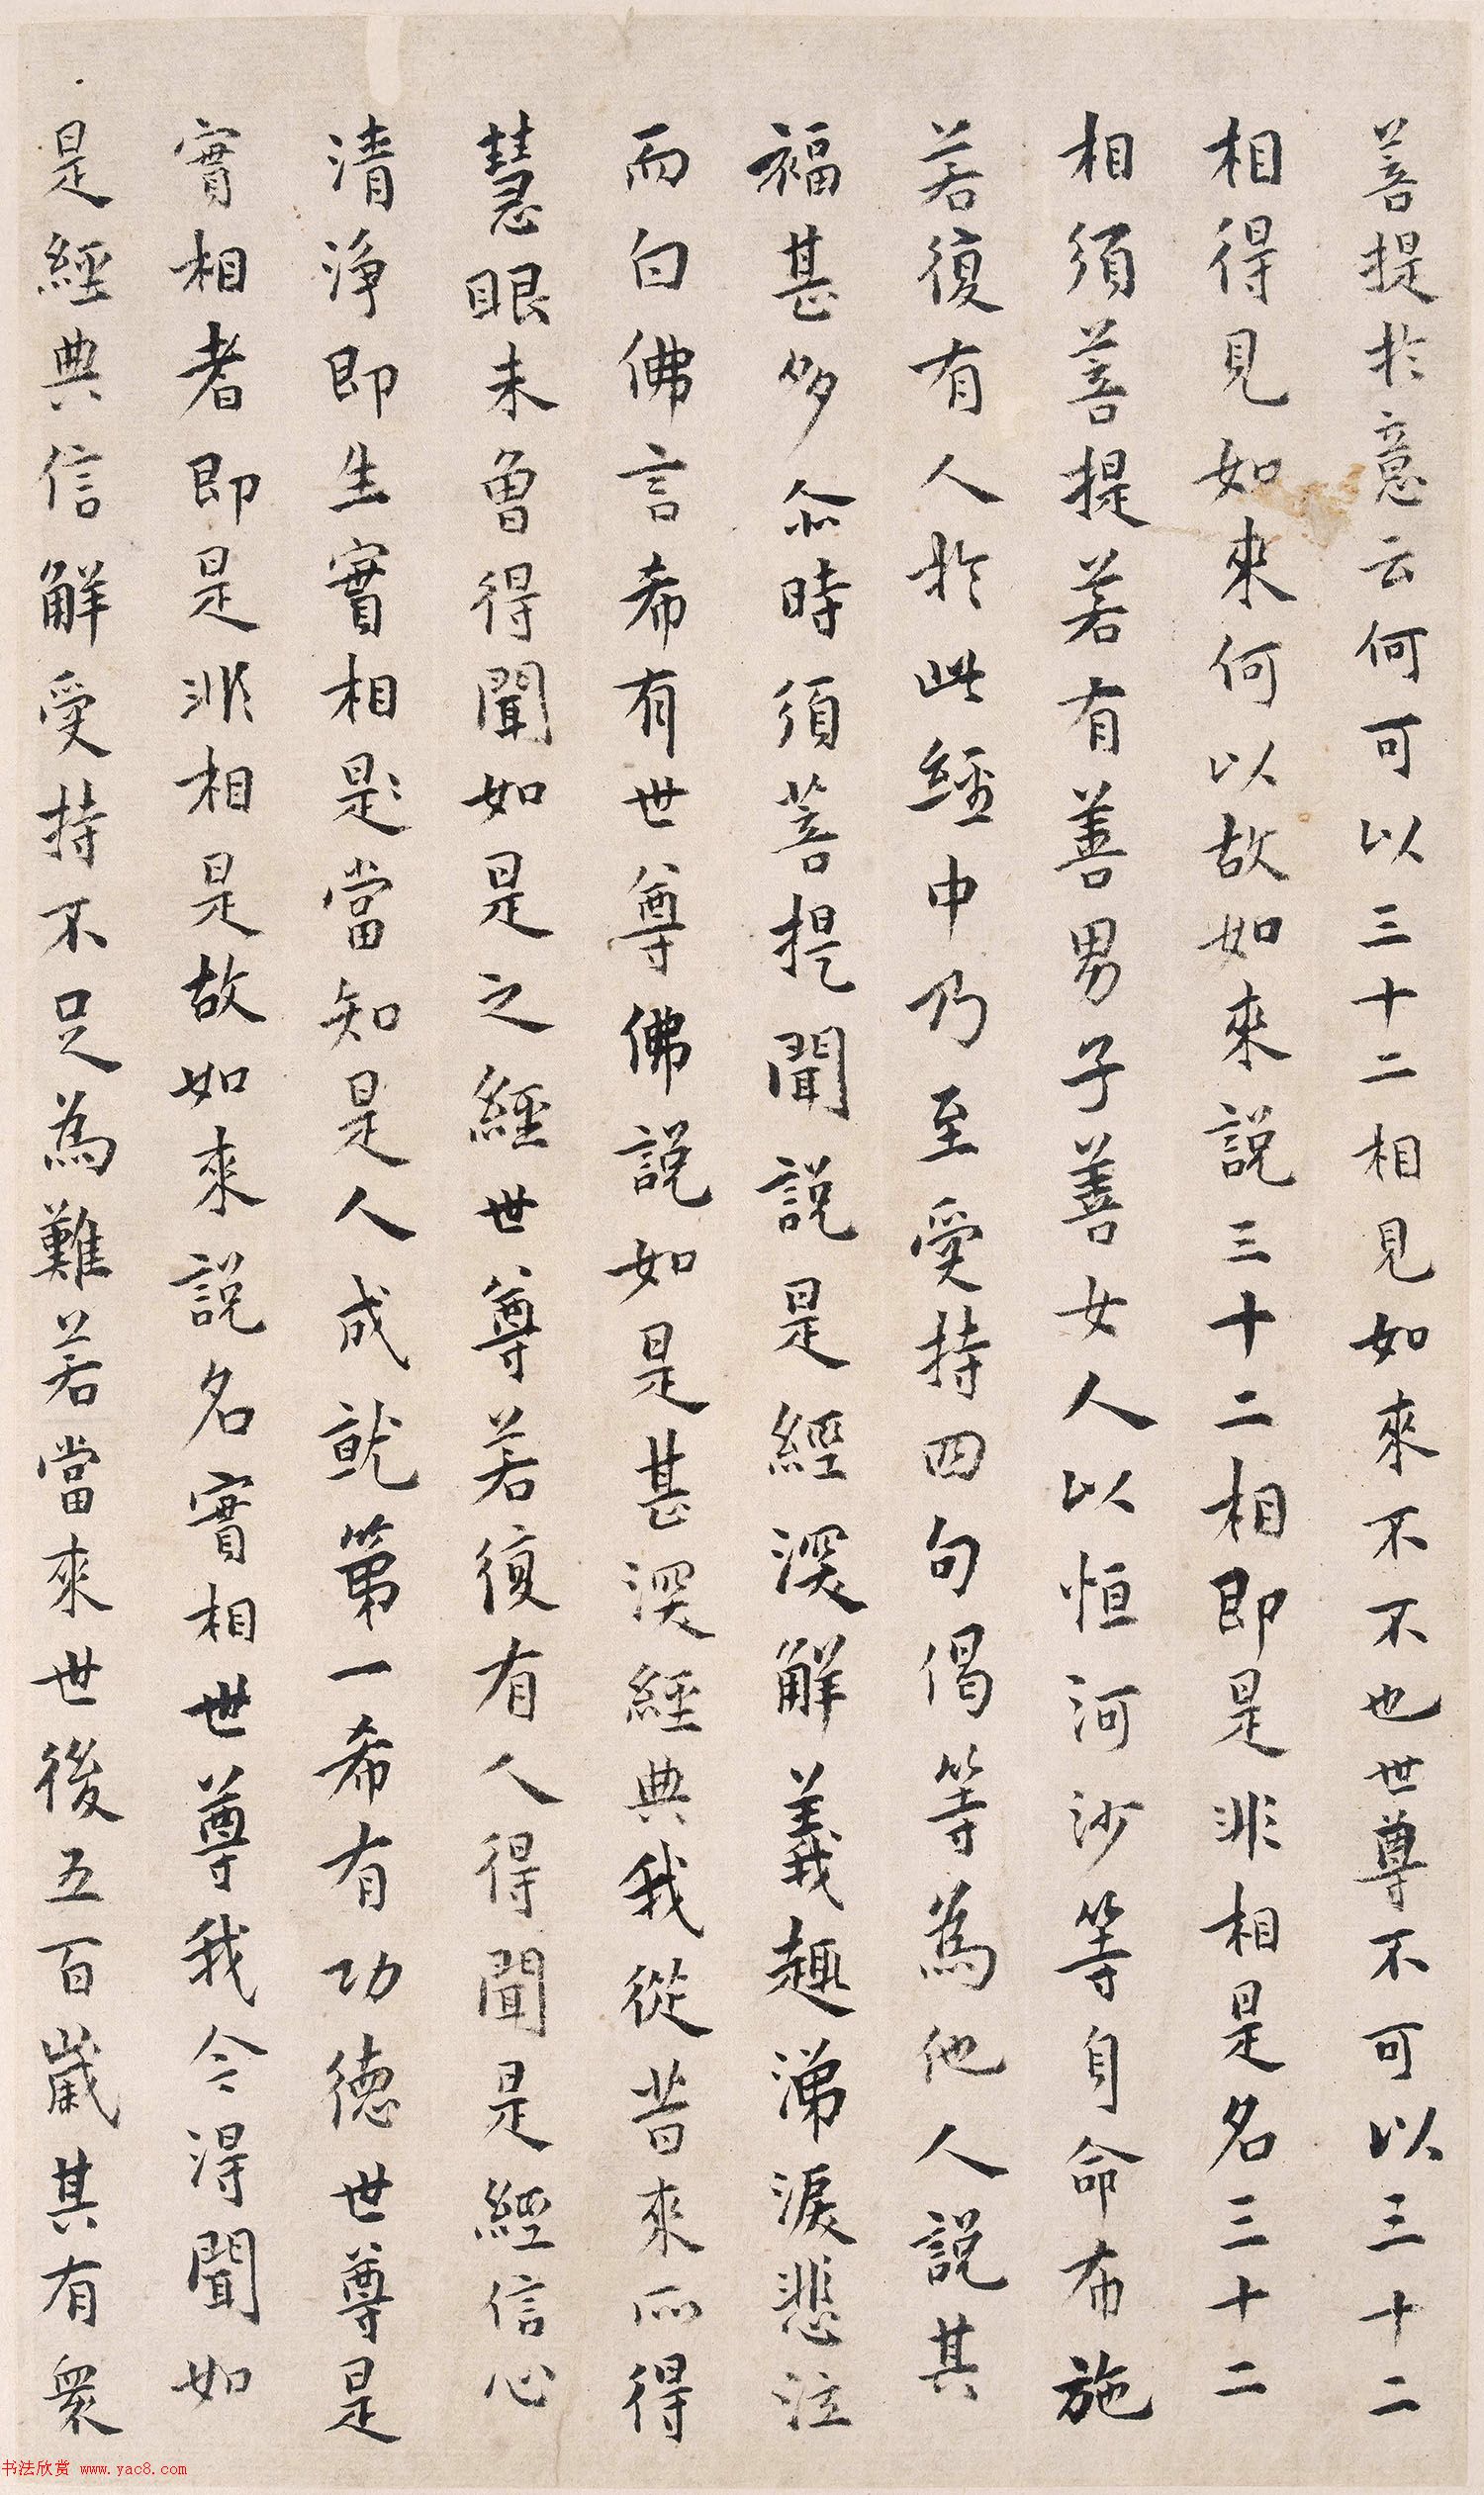 菩提於意云何可以三十二相見如來不不也世尊不可以三十二
相得見如來何以故如來說三十二相即是非相是名三十二
相須菩提若有善男子善女人以恒河沙等身命布施
若復有人於此經中乃至受持四句偈等為他人說其
福甚多爾時須菩提聞說是經深解義趣涕淚悲泣
而白佛言希有世尊佛說如是甚深經典我從昔來所得
慧眼未曾得聞如是之經世尊若復有人得聞是經信心
清淨即生實相是當知是人成就第一希有功德世尊是
實相者即是非相是故如來說名實相世尊我今得聞如
是經典信解受持不足為難若當來世後五百歲其有眾
书法欣赏 www.yac8.com